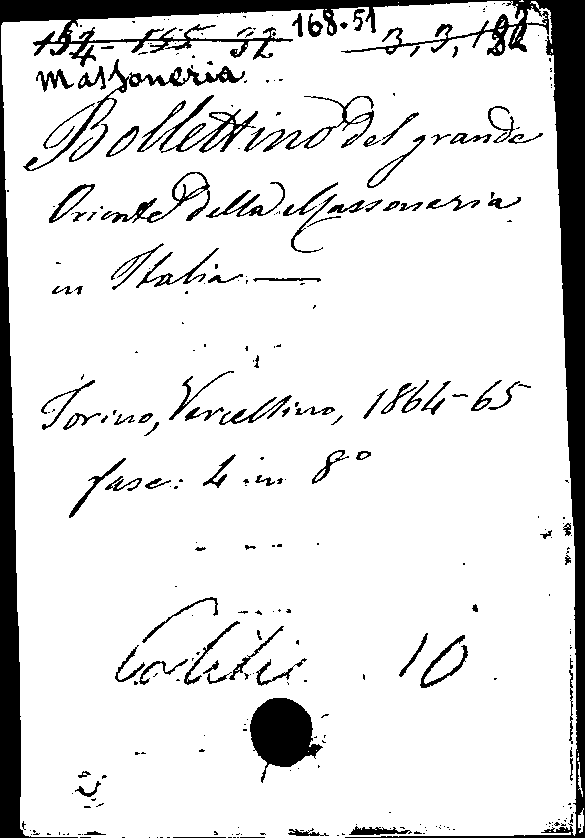 168.51
Massoneria
Bollettino del grande
Oriente della Massoneria
in Italia —
Torino, Vercellino, 1864-65
fasc: 4 in 8°
10